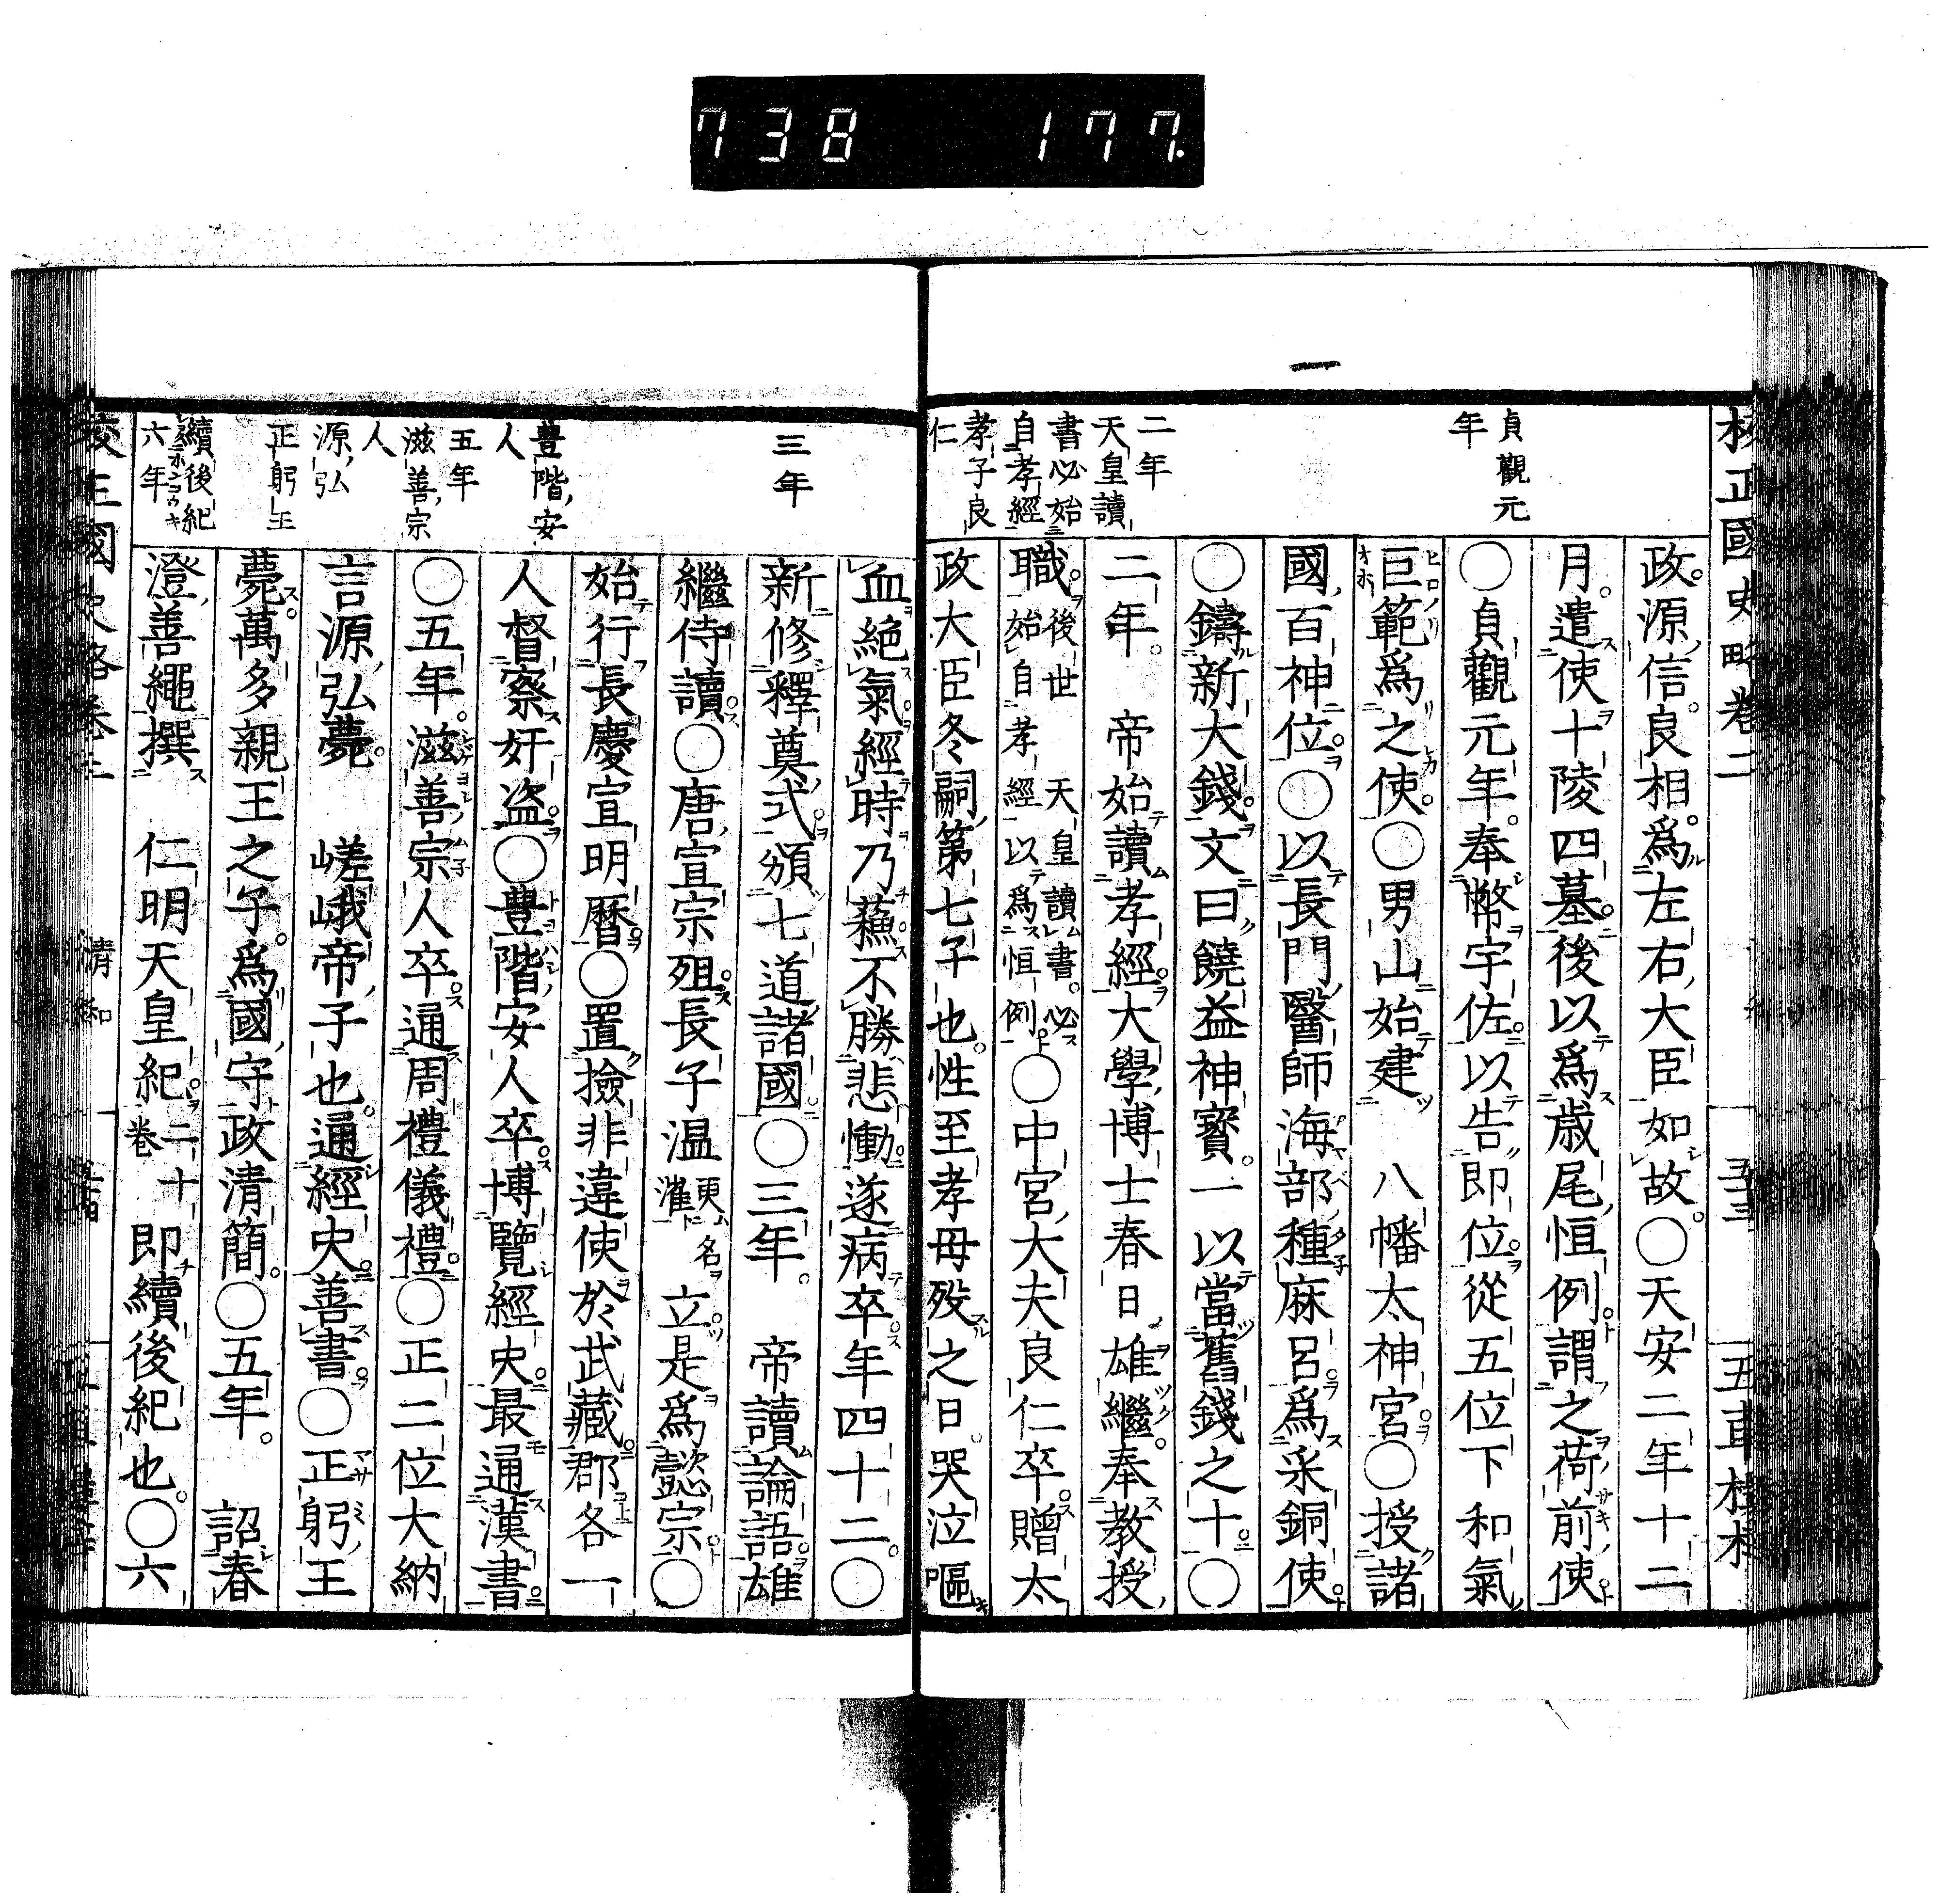 738 177.
校正國史略卷二
五車楼梓
貞觀元
年
二年
天皇讀
書必始
自孝經
孝子良
仁
政源信良相爲左右大臣如故○天安二年十二
月遣使十陵四墓後以爲歳尾恒例謂之荷前使
○貞觀元年奉幣宇佐以告即位從五位下和氣
巨範爲之使○男山始建 八幡太神宮○授諸
國百神位○以長門醫師海部種麻呂爲采銅使
○鑄新大錢文曰饒益神寳一以當舊錢之十○
二年 帝始讀孝經大學博士春日雄繼奉教授
職後世 天皇讀書必始自孝經以爲恒例○中宮大夫良仁卒贈太
政大臣冬嗣第七子也性至孝母歿之日哭泣嘔
三年
豊階安
人
五年
滋善宗
人
源弘
正躬王
續後紀
六年
血絶氣經時乃蘇不勝悲慟遂病卒年四十二○
新修釋奠式頒七道諸國○三年 帝讀論語雄
繼侍讀○唐宣宗殂長子温更名漼立是爲懿宗○
始行長慶宣明曆○置撿非違使於武藏郡各一
人督察奸盗○豊階安人卒博覽經史最通漢書
○五年滋善宗人卒通周禮儀禮○正二位大納
言源弘薨 嵯峨帝子也通經史善書○正躬王
薨萬多親王之子爲國守政清簡○五年 詔春
澄善繩撰 仁明天皇紀二十卷即續後紀也○六
清和